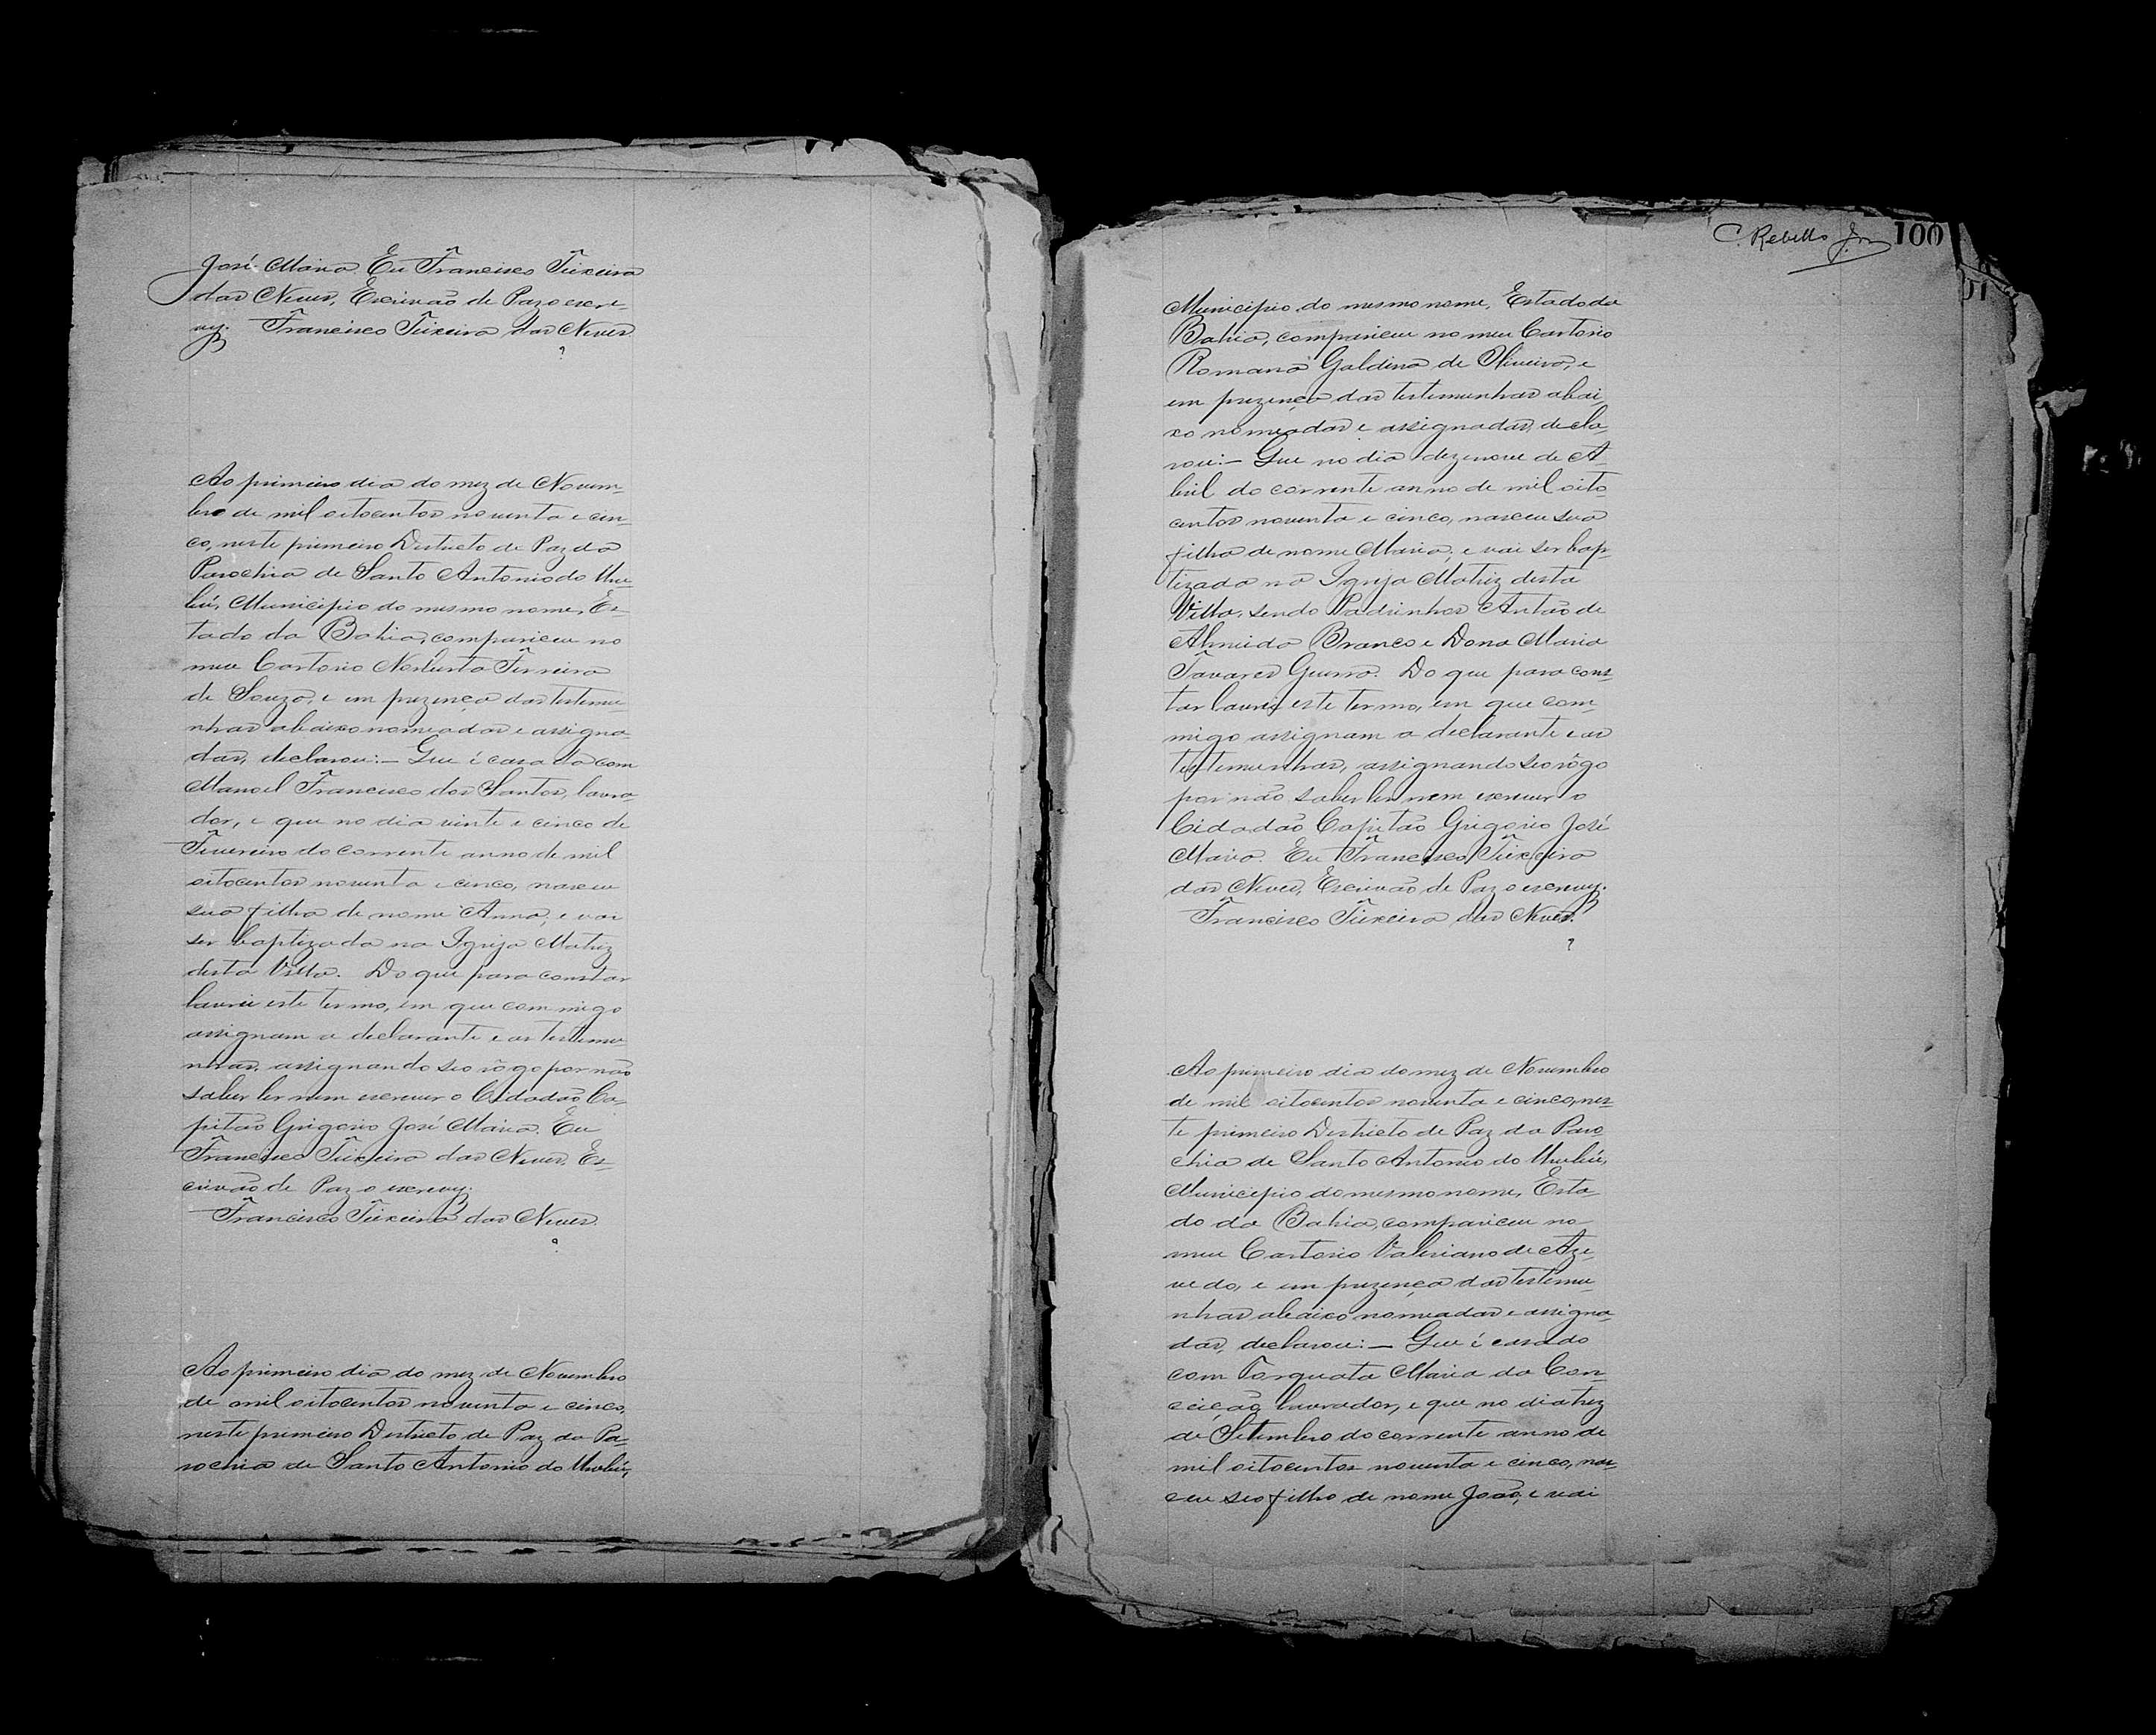 José Maria. Eu Francisco Teixeira
das Neves, Escrivão de Paz o escre-
vy. Francisco Teixeira das Neves.
Ao primeiro dia do mez de Novem-
bro de mil oitocentos noventa e cin-
co, neste primeiro Districto de Paz da
Parochia de Santo Antonio do Uru-
bú, Municipio do mesmo nome, Es-
tado da Bahia, compareceu no
meu Cartorio Norberta Ferreira
de Souza, e em prezença das testemu-
nhas abaixo nomeadas e assigna-
das, declarou:— Que é casada com
Manoel Francisco dos Santos, lavra-
dor, e que no dia vinte e cinco de
Fevereiro do corrente anno de mil
oitocentos noventa e cinco, nasceu
sua filha de nome Anna, e vai
ser baptizada na Igreja Matriz
desta Villa. Do que para constar
lavrei este termo, em que commigo
assignam a declarante e as testemu-
nhas, assignando seo rôgo por não
saber ler nem escrever o Cidadão Ca-
pitão Grigorio José Maria. Eu
Francisco Teixeira das Neves, Es-
crivão de Paz o escrevy.
Francisco Teixeira das Neves.
Ao primeiro dia do mez de Novembro
de mil oitocentos noventa e cinco,
neste primeiro Districto de Paz da Pa-
rochia de Santo Antonio do Urubú,
C. Rebello Jor 100
Municipio do mesmo nome, Estado da
Bahia, compareceu no meu Cartorio
Romana Galdina de Oliveira, e
em prezença das testemunhas abai-
xo nomeadas e assignadas, decla-
rou:— Que no dia dezenove de A-
bril do corrente anno de mil oito-
centos noventa e cinco, nasceu sua
filha de nome Maria; e vai ser bap-
tizada na Igreja Matriz desta
Villa, sendo Padrinhos Antão de
Almeida Branco e Dona Maria
Tavares Guerra. Do que para cons-
tar lavrei este termo, em que com-
migo assignam a declarante e as
testemunhas, assignando seo rôgo
por não saber ler nem escrever o
Cidadão Capitão Grigorio José
Maria. Eu Francisco Teixeira
das Neves, Escrivão de Paz o escrevy.
Francisco Teixeira das Neves.
Ao primeiro dia do mez de Novembro
de mil oitocentos noventa e cinco, nes-
te primeiro Districto de Paz da Paro-
chia de Santo Antonio do Urubú,
Municipio do mesmo nome, Esta-
do da Bahia, compareceu no
meu Cartorio Valeriano de Aze-
vedo, e em prezença das testemu-
nhas abaixo nomeadas e assigna-
das, declarou:— Que é casado
com Torquata Maria da Con-
ceição, lavrador, e que no dia trez
de Setembro do corrente anno de
mil oitocentos noventa e cinco, nas-
ceu seo filho de nome João, e vai